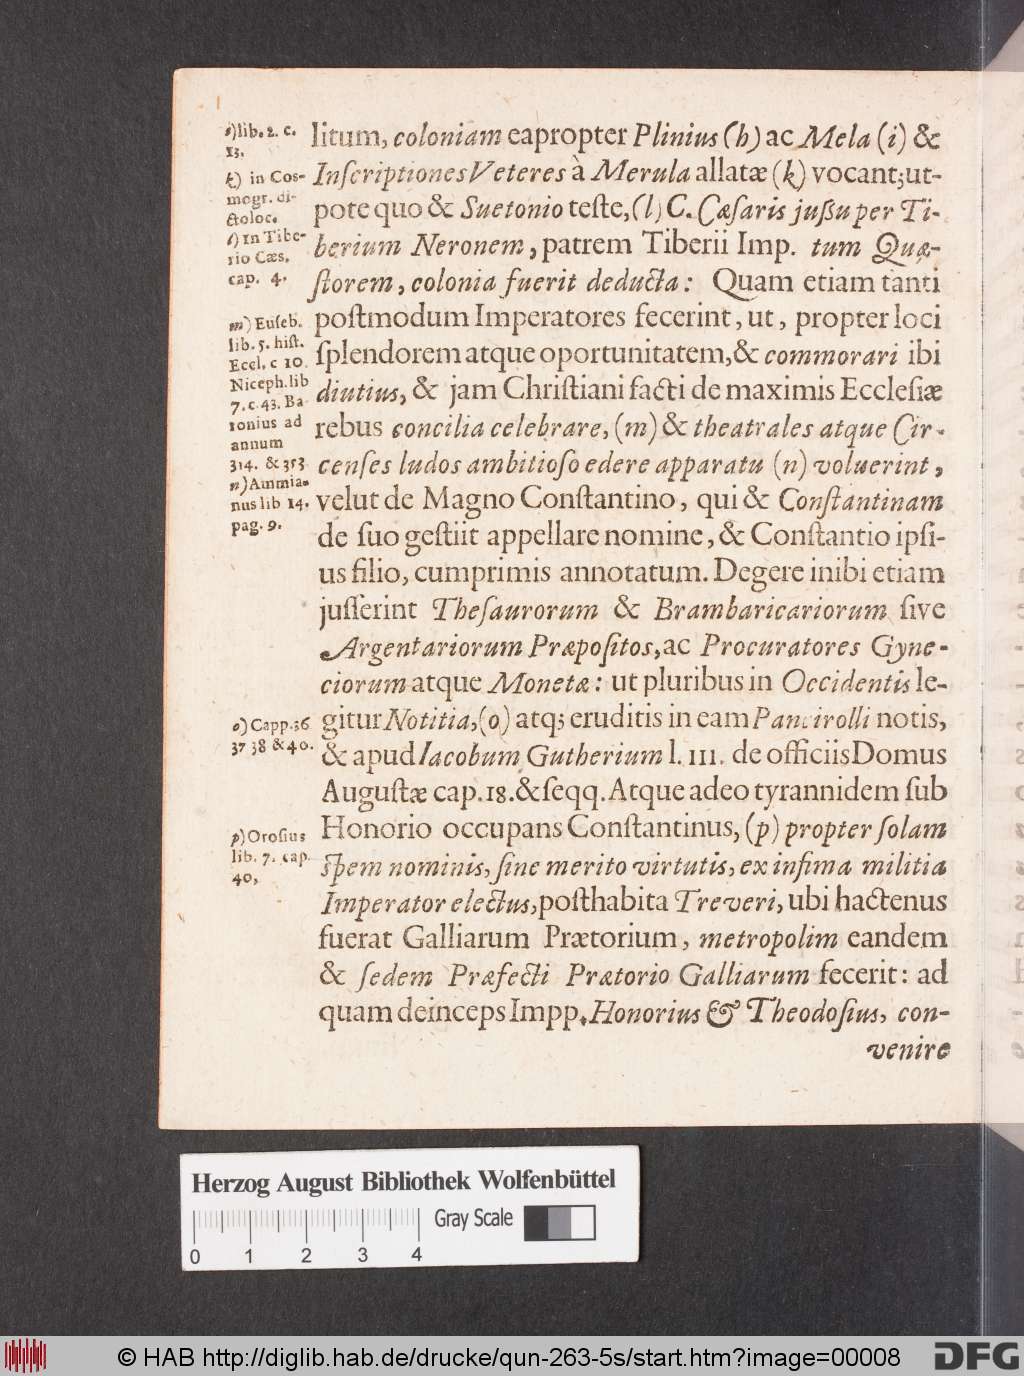 litum, coloniam eapropter Plinius (h) ac Mela (i) &
Inſcriptiones Veteres à Merula allatæ (k) vocant; ut-
pote quo & Suetonio teſte, (l) C. Cæſaris juſſu per Ti-
berium Neronem, patrem Tiberii Imp. tum Quæ-
ſtorem, colonia fuerit deducta: Quam etiam tanti
poſtmodum Imperatores fecerint, ut, propter loci
ſplendorem atque oportunitatem, & commorari ibi
diutius, & jam Chriſtiani facti de maximis Eccleſiæ
rebus concilia celebrare, (m) & theatrales atque Cir-
cenſes ludos ambitioſo edere apparatu (n) voluerint,
velut de Magno Conſtantino, qui & Conſtantinam
de ſuo geſtiit appellare nomine, & Conſtantio ipſi-
us filio, cumprimis annotatum. Degere inibi etiam
juſſerint Theſaurorum & Brambaricariorum ſive
Argentariorum Præpoſitos, ac Procuratores Gyne-
ciorum atque Monetæ: ut pluribus in Occidentis le-
gitur Notitia, (o) atq; eruditis in eam Pancirolli notis,
& apud Iacobum Gutherium l. III. de officiis Domus
Auguſtæ cap. 18. & ſeqq. Atque adeo tyrannidem ſub
Honorio occupans Conſtantinus, (p) propter ſolam
ſpem nominis, ſine merito virtutis, ex infima militia
Imperator electus, poſthabita Treveri, ubi hactenus
fuerat Galliarum Prætorium, metropolim eandem
& ſedem Præfecti Prætorio Galliarum fecerit: ad
quam deinceps Impp. Honorius & Theodoſius, con-
venire
i) lib. 2. c.
13.
k) in Cos-
mogr. di-
ctoloc.
l) In Tibe-
rio Cæs.
cap. 4.
m) Euſeb.
lib. 5. hiſt.
Eccl. c 10.
Niceph. lib
7. c. 43. Ba
ronius ad
annum
314. & 353
n) Ammia-
nus lib 14.
pag. 9.
o) Capp. 36
37 38 & 40.
p) Oroſius
lib. 7. cap.
40,
Herzog August Bibliothek Wolfenbüttel
Gray Scale
0 1 2 3 4
© HAB http://diglib.hab.de/drucke/qun-263-5s/start.htm?image=00008
DFG